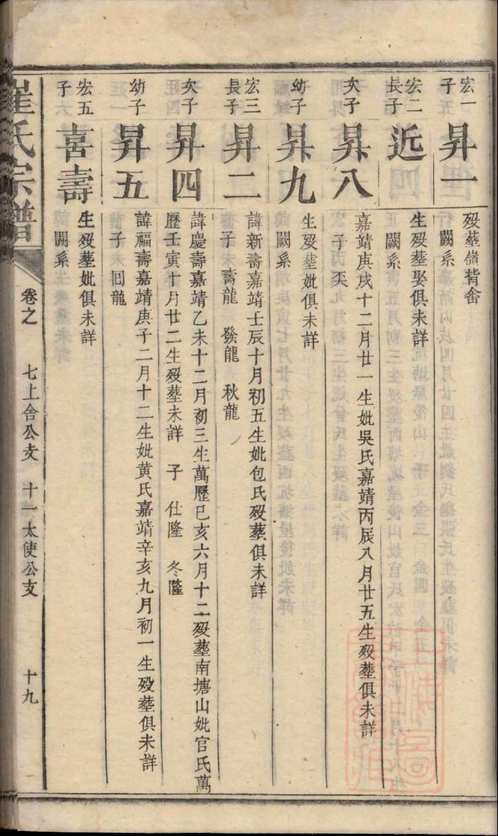 宏一
子
昇一
歿塟嶺背舍
闕系
宏二
長子
近
生歿塟娶俱未詳
闕系
次子
昇八
嘉靖庚戌十二月廿一生妣吳氏嘉靖丙辰八月廿五生歿塟俱未詳
子 丙
幼子
昇九
生歿塟妣俱未詳
闕系
宏三
長子
昇二
諱新壽嘉靖壬辰十月初五生妣包氏歿塟俱未詳
子 壽龍 發龍 秋龍
次子
昇四
諱慶壽嘉靖乙未十二月初三生萬歷已亥六月十二歿塟南塘山妣官氏萬
歷壬寅十月廿二生歿塟未詳 子 仕隆 冬隆
幼子
昇五
諱福壽嘉靖庚子二月十二生妣黄氏嘉靖辛亥九月初一生歿塟俱未詳
子 回龍
宏五
子
喜壽
生歿塟妣俱未詳
闕系
崔氏宗譜
卷之
七上舍公支 十一太使公支
十九